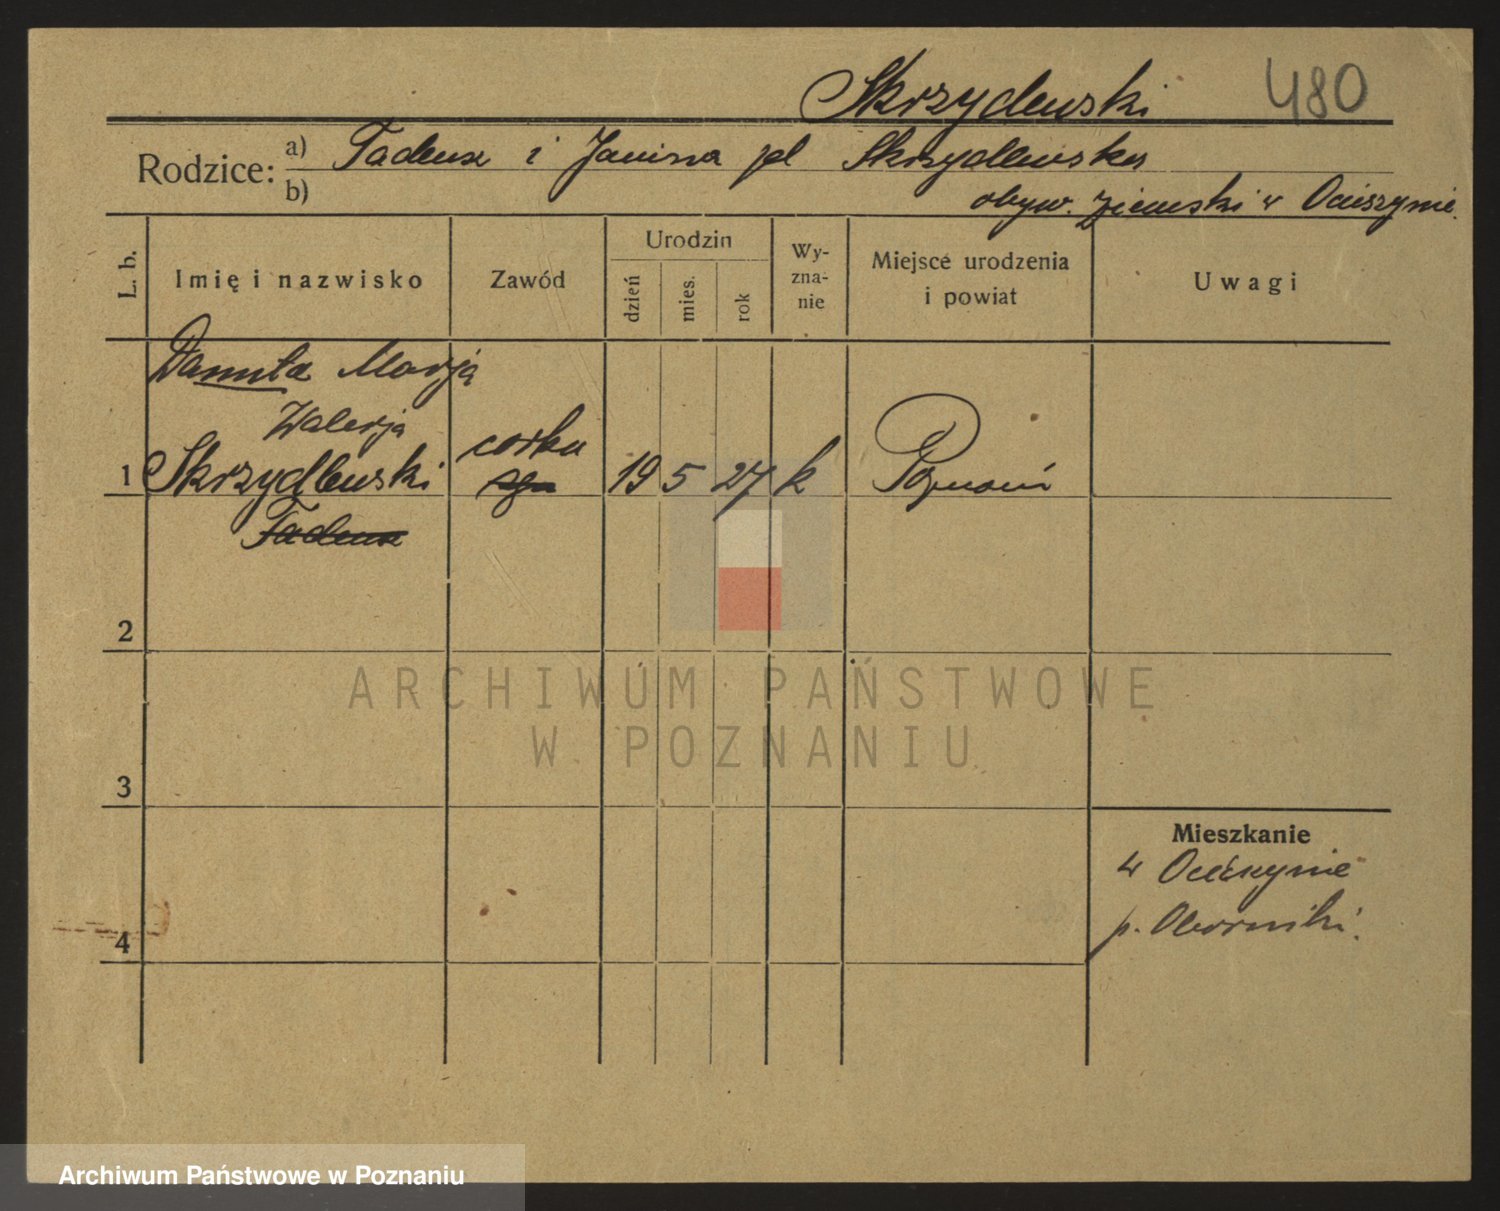 Skrzydlewski 480
Rodzice: a) Tadeusz i Janina pł Skrzydlewska
b) obyw. ziemski w Ociszynie.
L. b. Imię i nazwisko Zawód Urodzin dzień mies. rok Wyznanie Miejsce urodzenia i powiat Uwagi
Danuta Marja
Walerja
1 Skrzydlewski córka syn 19 5 27 k Poznań
Tadeusz
2
3
Mieszkanie
w Ociszynie
p. Oborniki.
4
ARCHIWUM PAŃSTWOWE
W POZNANIU
Archiwum Państwowe w Poznaniu